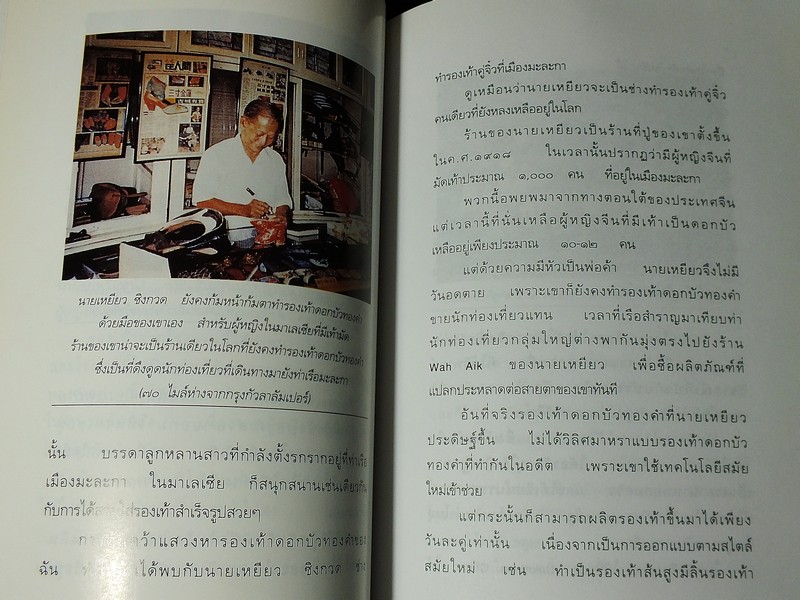 在人間
三寸金蓮
นายเหยียว ซิงกวด ยังคงก้มหน้าก้มตาทำรองเท้าดอกบัวทองคำ
ด้วยมือของเขาเอง สำหรับผู้หญิงในมาเลเซียที่มีเท้ามัด
ร้านของเขาน่าจะเป็นร้านเดียวในโลกที่ยังคงทำรองเท้าดอกบัวทองคำ
ซึ่งเป็นที่ดึงดูดนักท่องเที่ยวที่เดินทางมายังท่าเรือมะละกา
(๗๐ ไมล์ห่างจากกรุงกัวลาลัมเปอร์)
นั้น บรรดาลูกหลานสาวที่กำลังตั้งรกรากอยู่ที่ท่าเรือ
เมืองมะละกา ในมาเลเซีย ก็สนุกสนานเช่นเดียวกัน
กับการได้ ใส่รองเท้าสำเร็จรูปสวยๆ
ว้าแสวงหารองเท้าดอกบัวทองคำของ
ฉัน ได้พบกับนายเหยียว ซิงกวด ช่าง
ทำรองเท้าคู่จิ๋วที่เมืองมะละกา
ดูเหมือนว่านายเหยียวจะเป็นช่างทำรองเท้าคู่จิ๋ว
คนเดียวที่ยังหลงเหลืออยู่ในโลก
ร้านของนายเหยียวเป็นร้านที่ปู่ของเขาตั้งขึ้น
ในค.ศ.๑๙๑๘ ในเวลานั้นปรากฏว่ามีผู้หญิงจีนที่
มัดเท้าประมาณ ๑,๐๐๐ คน ที่อยู่ในเมืองมะละกา
พวกนี้อพยพมาจากทางตอนใต้ของประเทศจีน
แต่เวลานี้ที่นั่นเหลือผู้หญิงจีนที่มีเท้าเป็นดอกบัว
เหลืออยู่เพียงประมาณ ๑๐-๑๒ คน
แต่ด้วยความมีหัวเป็นพ่อค้า นายเหยียวจึงไม่มี
วันอดตาย เพราะเขาก็ยังคงทำรองเท้าดอกบัวทองคำ
ขายนักท่องเที่ยวแทน เวลาที่เรือสำราญมาเทียบท่า
นักท่องเที่ยวกลุ่มใหญ่ต่างพากันมุ่งตรงไปยังร้าน
Wah Aik ของนายเหยียว เพื่อซื้อผลิตภัณฑ์ที่
แปลกประหลาดต่อสายตาของเขาทันที
อันที่จริงรองเท้าดอกบัวทองคำที่นายเหยียว
ประดิษฐ์ขึ้น ไม่ได้วิลิศมาหราแบบรองเท้าดอกบัว
ทองคำที่ทำกันในอดีต เพราะเขาใช้เทคโนโลยีสมัย
ใหม่เข้าช่วย
แต่กระนั้นก็สามารถผลิตรองเท้าขึ้นมาได้เพียง
วันละคู่เท่านั้น เนื่องจากเป็นการออกแบบตามสไตล์
สมัยใหม่ เช่น ทำเป็นรองเท้าส้นสูงมีลิ้นรองเท้า